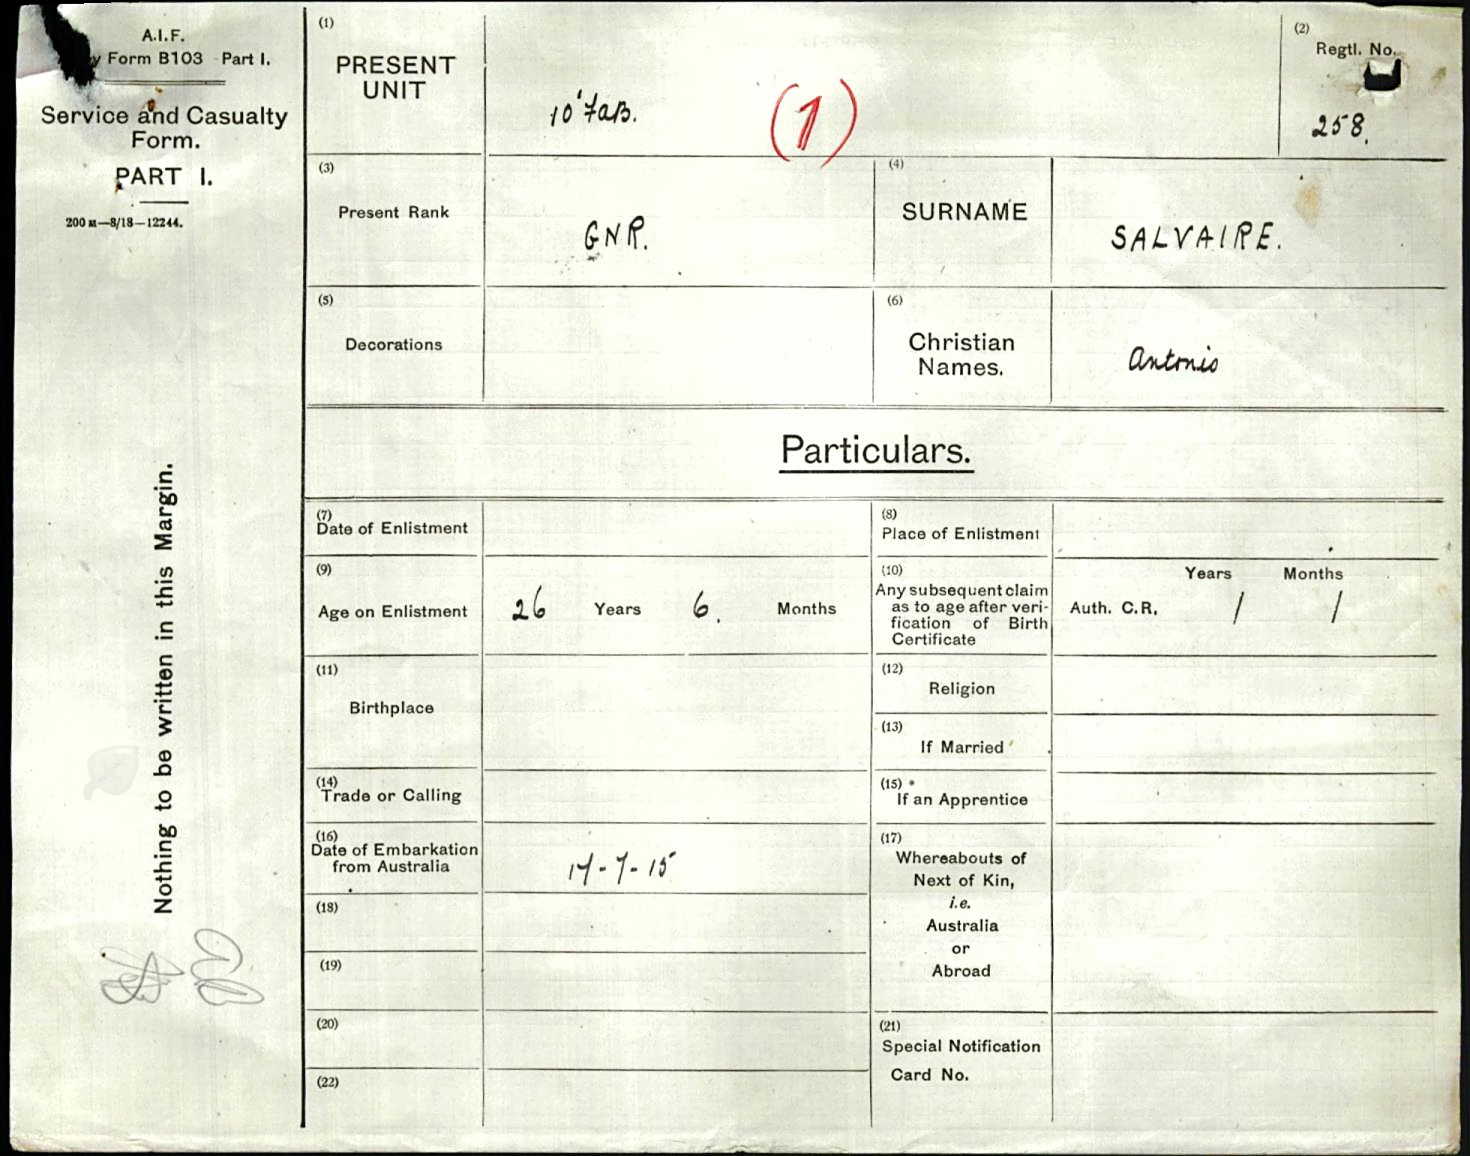 A.I.F.
Form B103 Part I.
Service and Casualty
Form.
PART I.
200 M—8/18—12244.
Nothing to be written in this Margin.
(1)
PRESENT
UNIT
10' FAB.
(1)
(2)
Regtl. No.
258.
(3)
Present Rank
GNR.
(4)
SURNAME
SALVAIRE.
(5)
Decorations
(6)
Christian
Names.
Antonio
Particulars.
(7)
Date of Enlistment
(8)
Place of Enlistment
(9)
Age on Enlistment
26 Years 6. Months
(10)
Any subsequent claim
as to age after veri-
fication of Birth
Certificate
Years Months
Auth. C.R. / /
(11)
Birthplace
(12)
Religion
(13)
If Married
(14)
Trade or Calling
(15)
If an Apprentice
(16)
Date of Embarkation
from Australia
17-7-15
(17)
Whereabouts of
Next of Kin,
i.e.
Australia
or
Abroad
(18)
(19)
(20)
(21)
Special Notification
Card No.
(22)